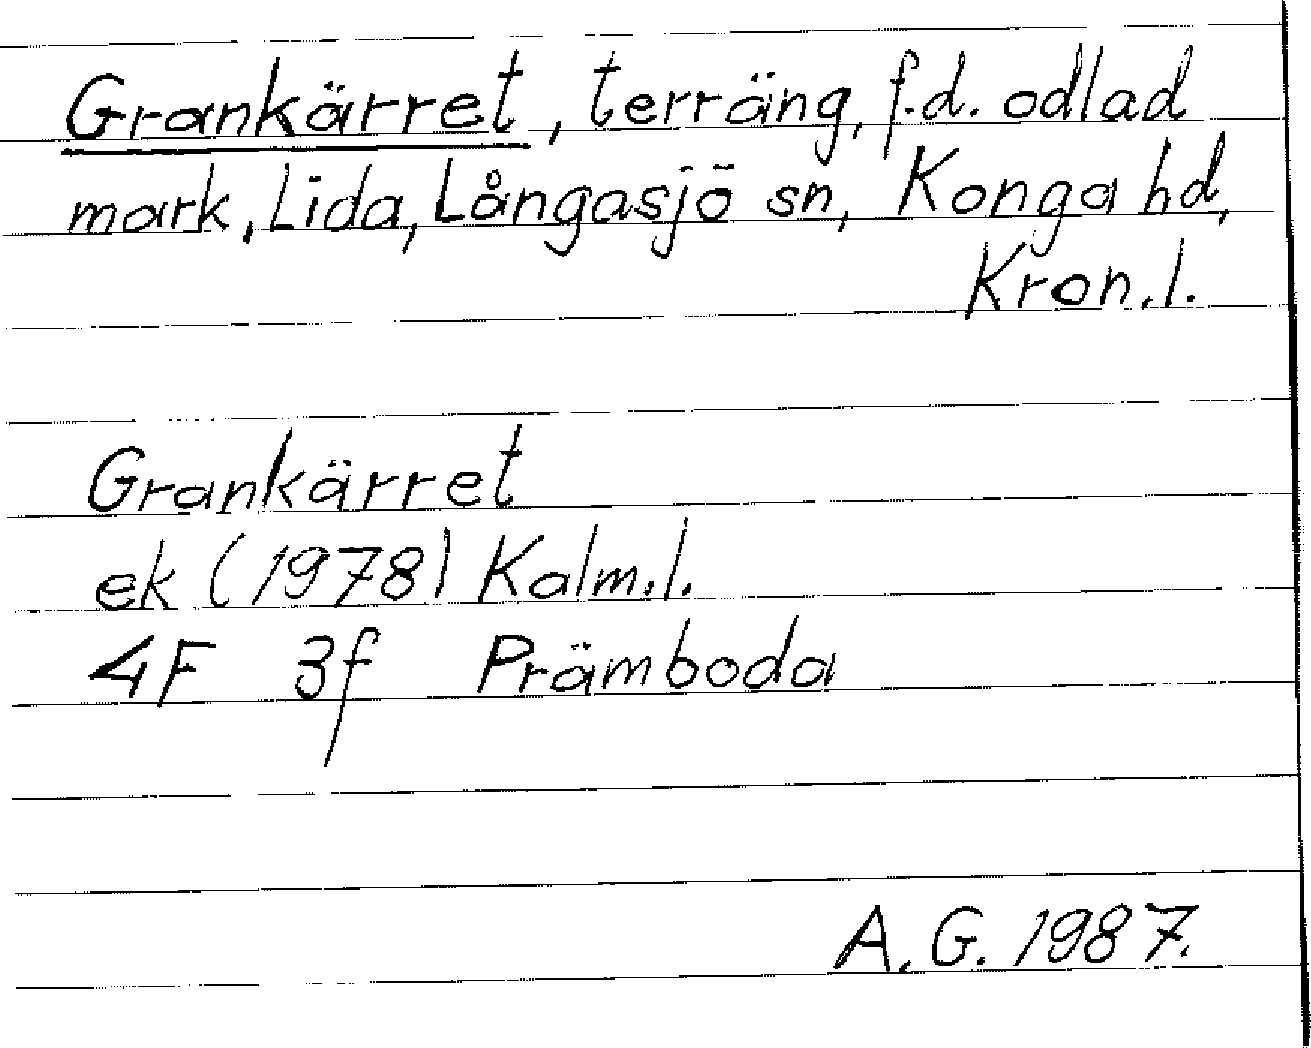 Grankärret, terräng, f.d. odlad
mark, Lida, Långasjö sn, Konga hd,
Kron.l.
Grankärret
ek (1978) Kalm.l.
4F 3f Främboda
A.G. 1987.